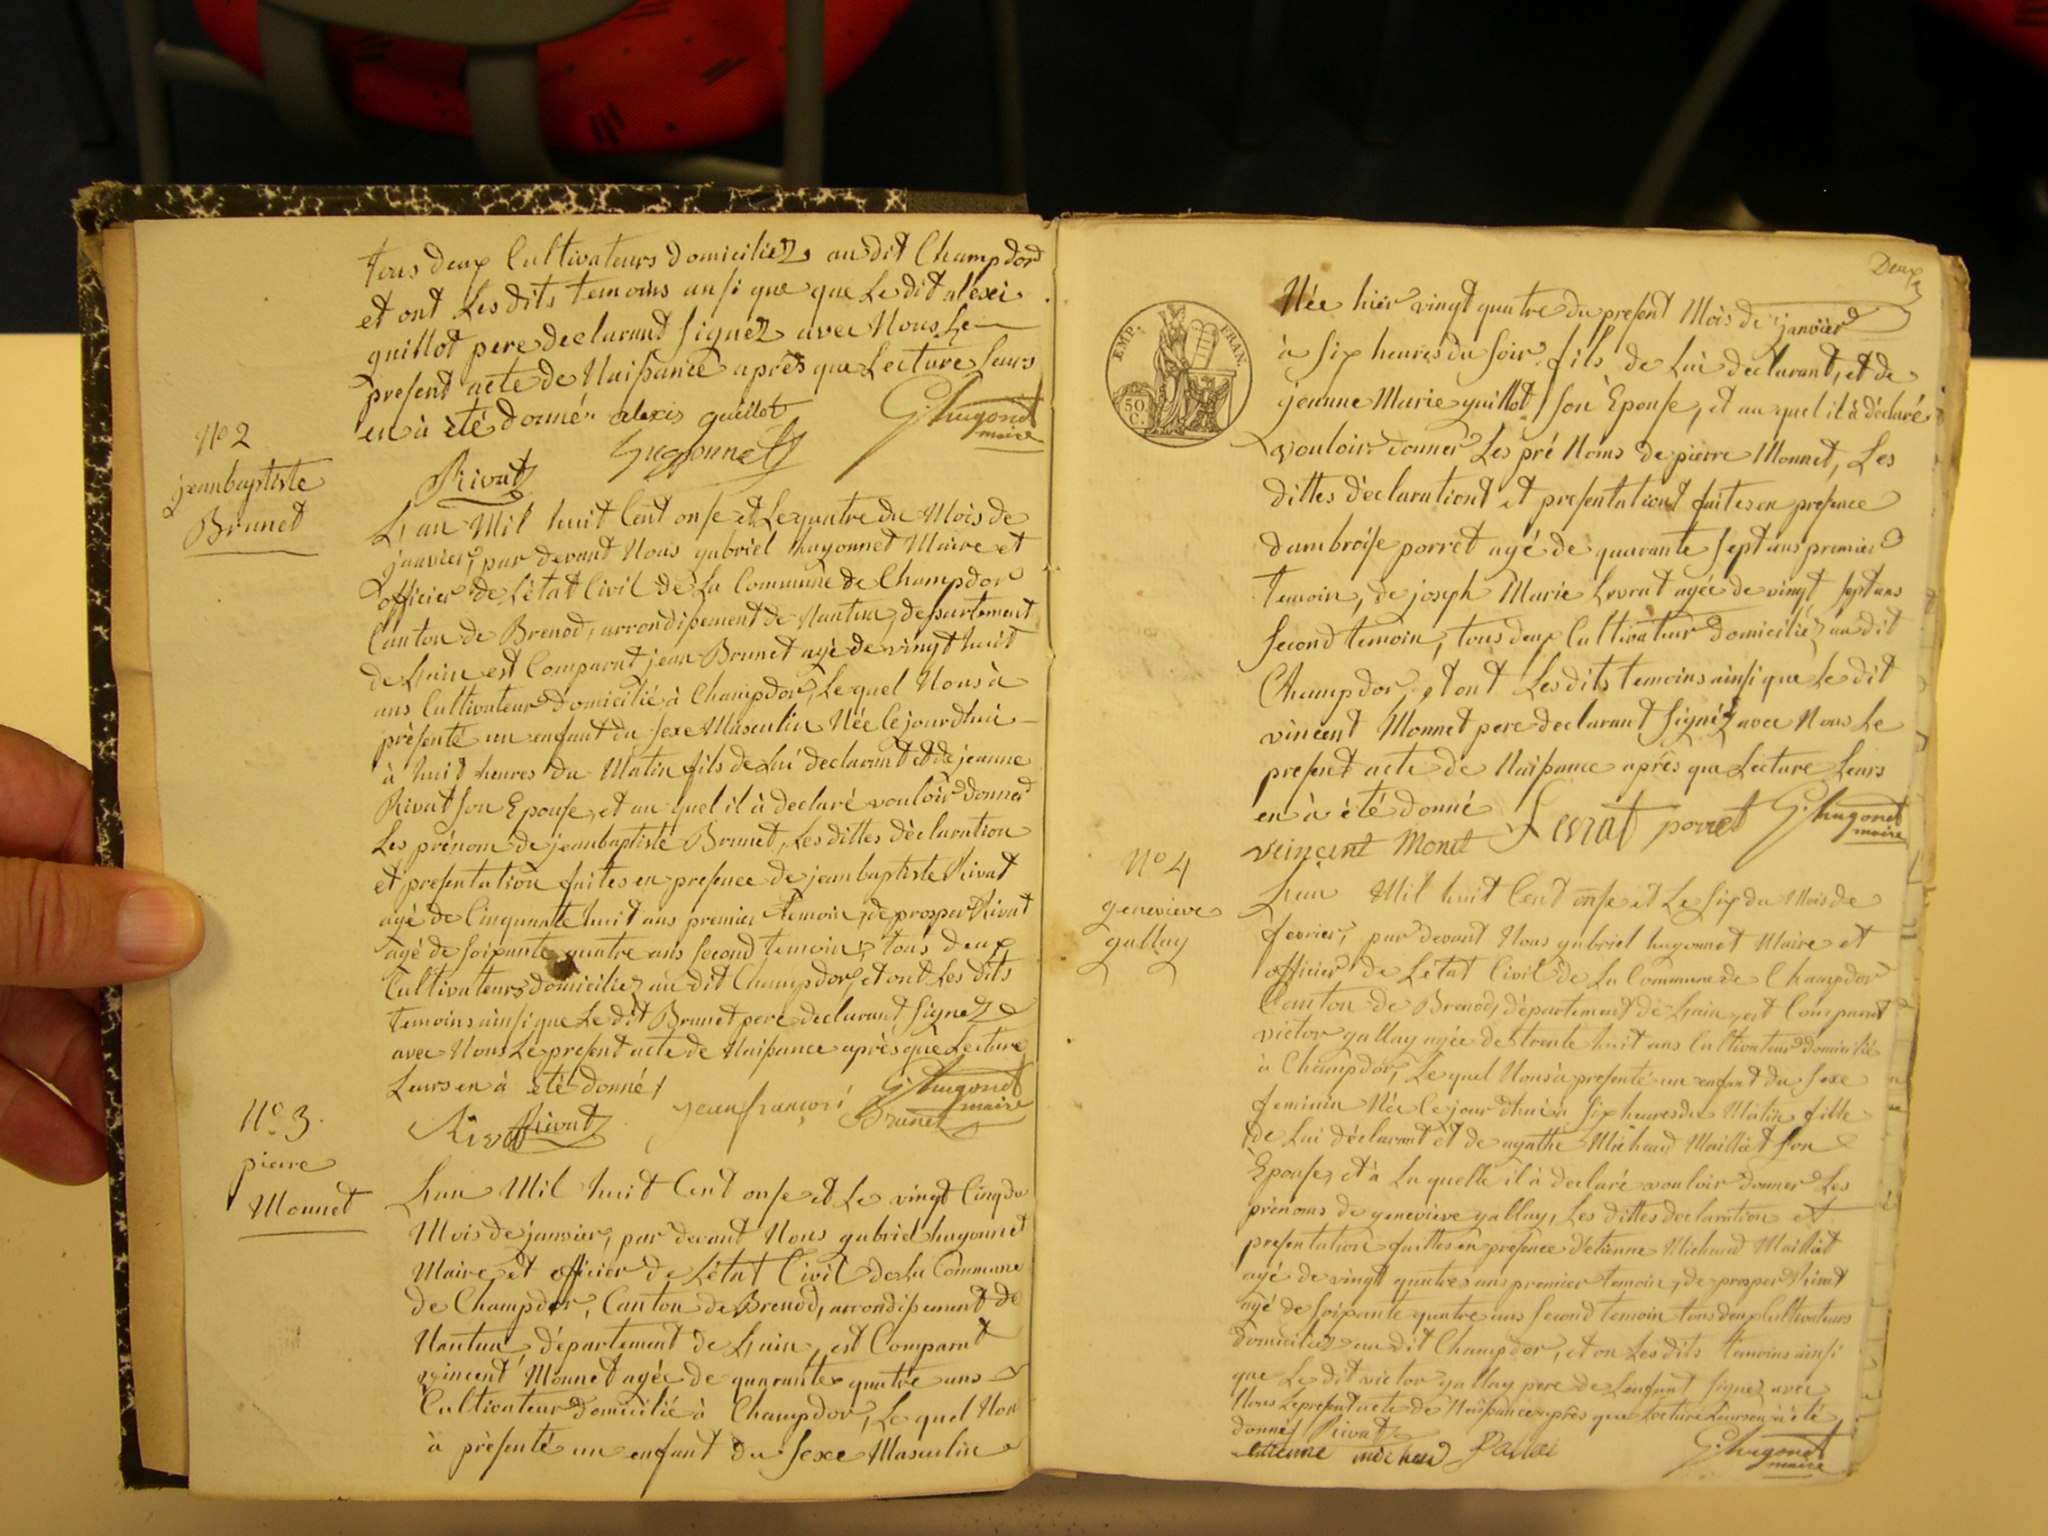 tous deux Cultivateurs domiciliez au dit Champdor
et ont Les dits temoins ansi que que Le dit alexi
guillot pere declarant signez avec Nous Le
present acte de Naissance après que Lecture Leurs
en à été donné alexis guillot G. hugonet
maire
Rivat hugonnet
N° 2
jeanbaptiste
Brunet
L'an Mil huit Cent onse et Le quatre du Mois de
janvier, par devant Nous gabriel hugonnet Maire et
officier de L'état Civil de La Commune de Champdor
Canton de Brenod, arrondissement de Nantua, departement
de L'ain est Comparut jean Brunet agé de vingt huit
ans Cultivateur domicilié à Champdor, Le quel Nous à
présenté un enfant du sexe Masculin Née Cejourdhui
à huit heures du Matin fils de Lui declarant et de jeanne
Rivat son Epouse, et au quel il à declaré vouloir donner
Les prénom de jeanbaptiste Brunet, Les dittes déclaration
et presentation faites en presence de jeanbaptiste Rivat
agé de Cinquante huit ans premier temoin, de prosper Rivat
agé de soixante quatre ans second temoin, tous deux
Cultivateurs domiciliez au dit Champdor, et ont Les dits
temoins ainsi que Le dit Brunet pere declarant signez
avec Nous Le present acte de Naissance après que Lecture
Leurs en à été donné G. hugonet
maire
Rivat Rivat jean francoi Brunet
N° 3.
pierre
Monnet
L'an Mil huit Cent onse et Le vingt Cinq du
Mois de janvier, par devant Nous gabriel hugonnet
Maire et officier de L'état Civil de La Commune
de Champdor, Canton de Brenod, arrondissement de
Nantua, département de L'ain, est Comparut
vincent Monnet agée de quarante quatre ans
Cultivateur domicilié à Champdor, Le quel Nou
à présenté un enfant du sexe Masculin
Deux
EMP. FRAN.
50
C.
Née hier vingt quatre du present Mois de janvier
à six heures du soir fils de Lui declarant, et de
jeanne Marie guillot son Epouse, et au quel il à déclaré
vouloir donner Les pré Noms de pierre Monnet, Les
dittes déclarationt et presentationt faites en presence
dambroise porret agé de quarante sept ans premier
temoin, de joseph Marie Levrat agée de vingt sept ans
second temoin, tous deux Cultivateur domiciliéz au dit
Champdor, et ont Les dits temoins ainsi que Le dit
vincent Monnet pere declarant signéz avec Nous Le
present acte de Naissance après que Lecture Leurs
en à été donné Levrat porret G. hugonet
maire
veincent Monet
N° 4
genevieve
gallay
L'an Mil huit Cent onse et Le six du Mois de
fevrier, par devant Nous gabriel hugonnet Maire et
officier de L'état Civil de La Commune de Champdor
Canton de Brenod, département de L'ain, est Comparut
victor gallay agée de trente huit ans Cultivateur domicilié
à Champdor, Le quel Nous à presenté un enfant du sexe
feminin Née Cejourdhui à six heures du Matin fille
de Lui déclarant et de agathe Michaud Maillat son
Epouse, et à La quelle il à declaré vouloir donner Les
prénoms de genevieve gallay, Les dittes declaration et
presentation faittes en presence d'etienne Michaud Maillat
agé de vingt quatres ans premier temoin, de prosper Rivat
agé de soixante quatre ans second temoin tous deux Cultivateurs
domiciliez au dit Champdor, et on Les dits temoins ainsi
que Le dit victor gallay pere de L'enfant signez avec
Nous Le present acte de Naissance après que Lecture Leurs en à été
donné Rivat
etienne michaud G. hugonet
maire